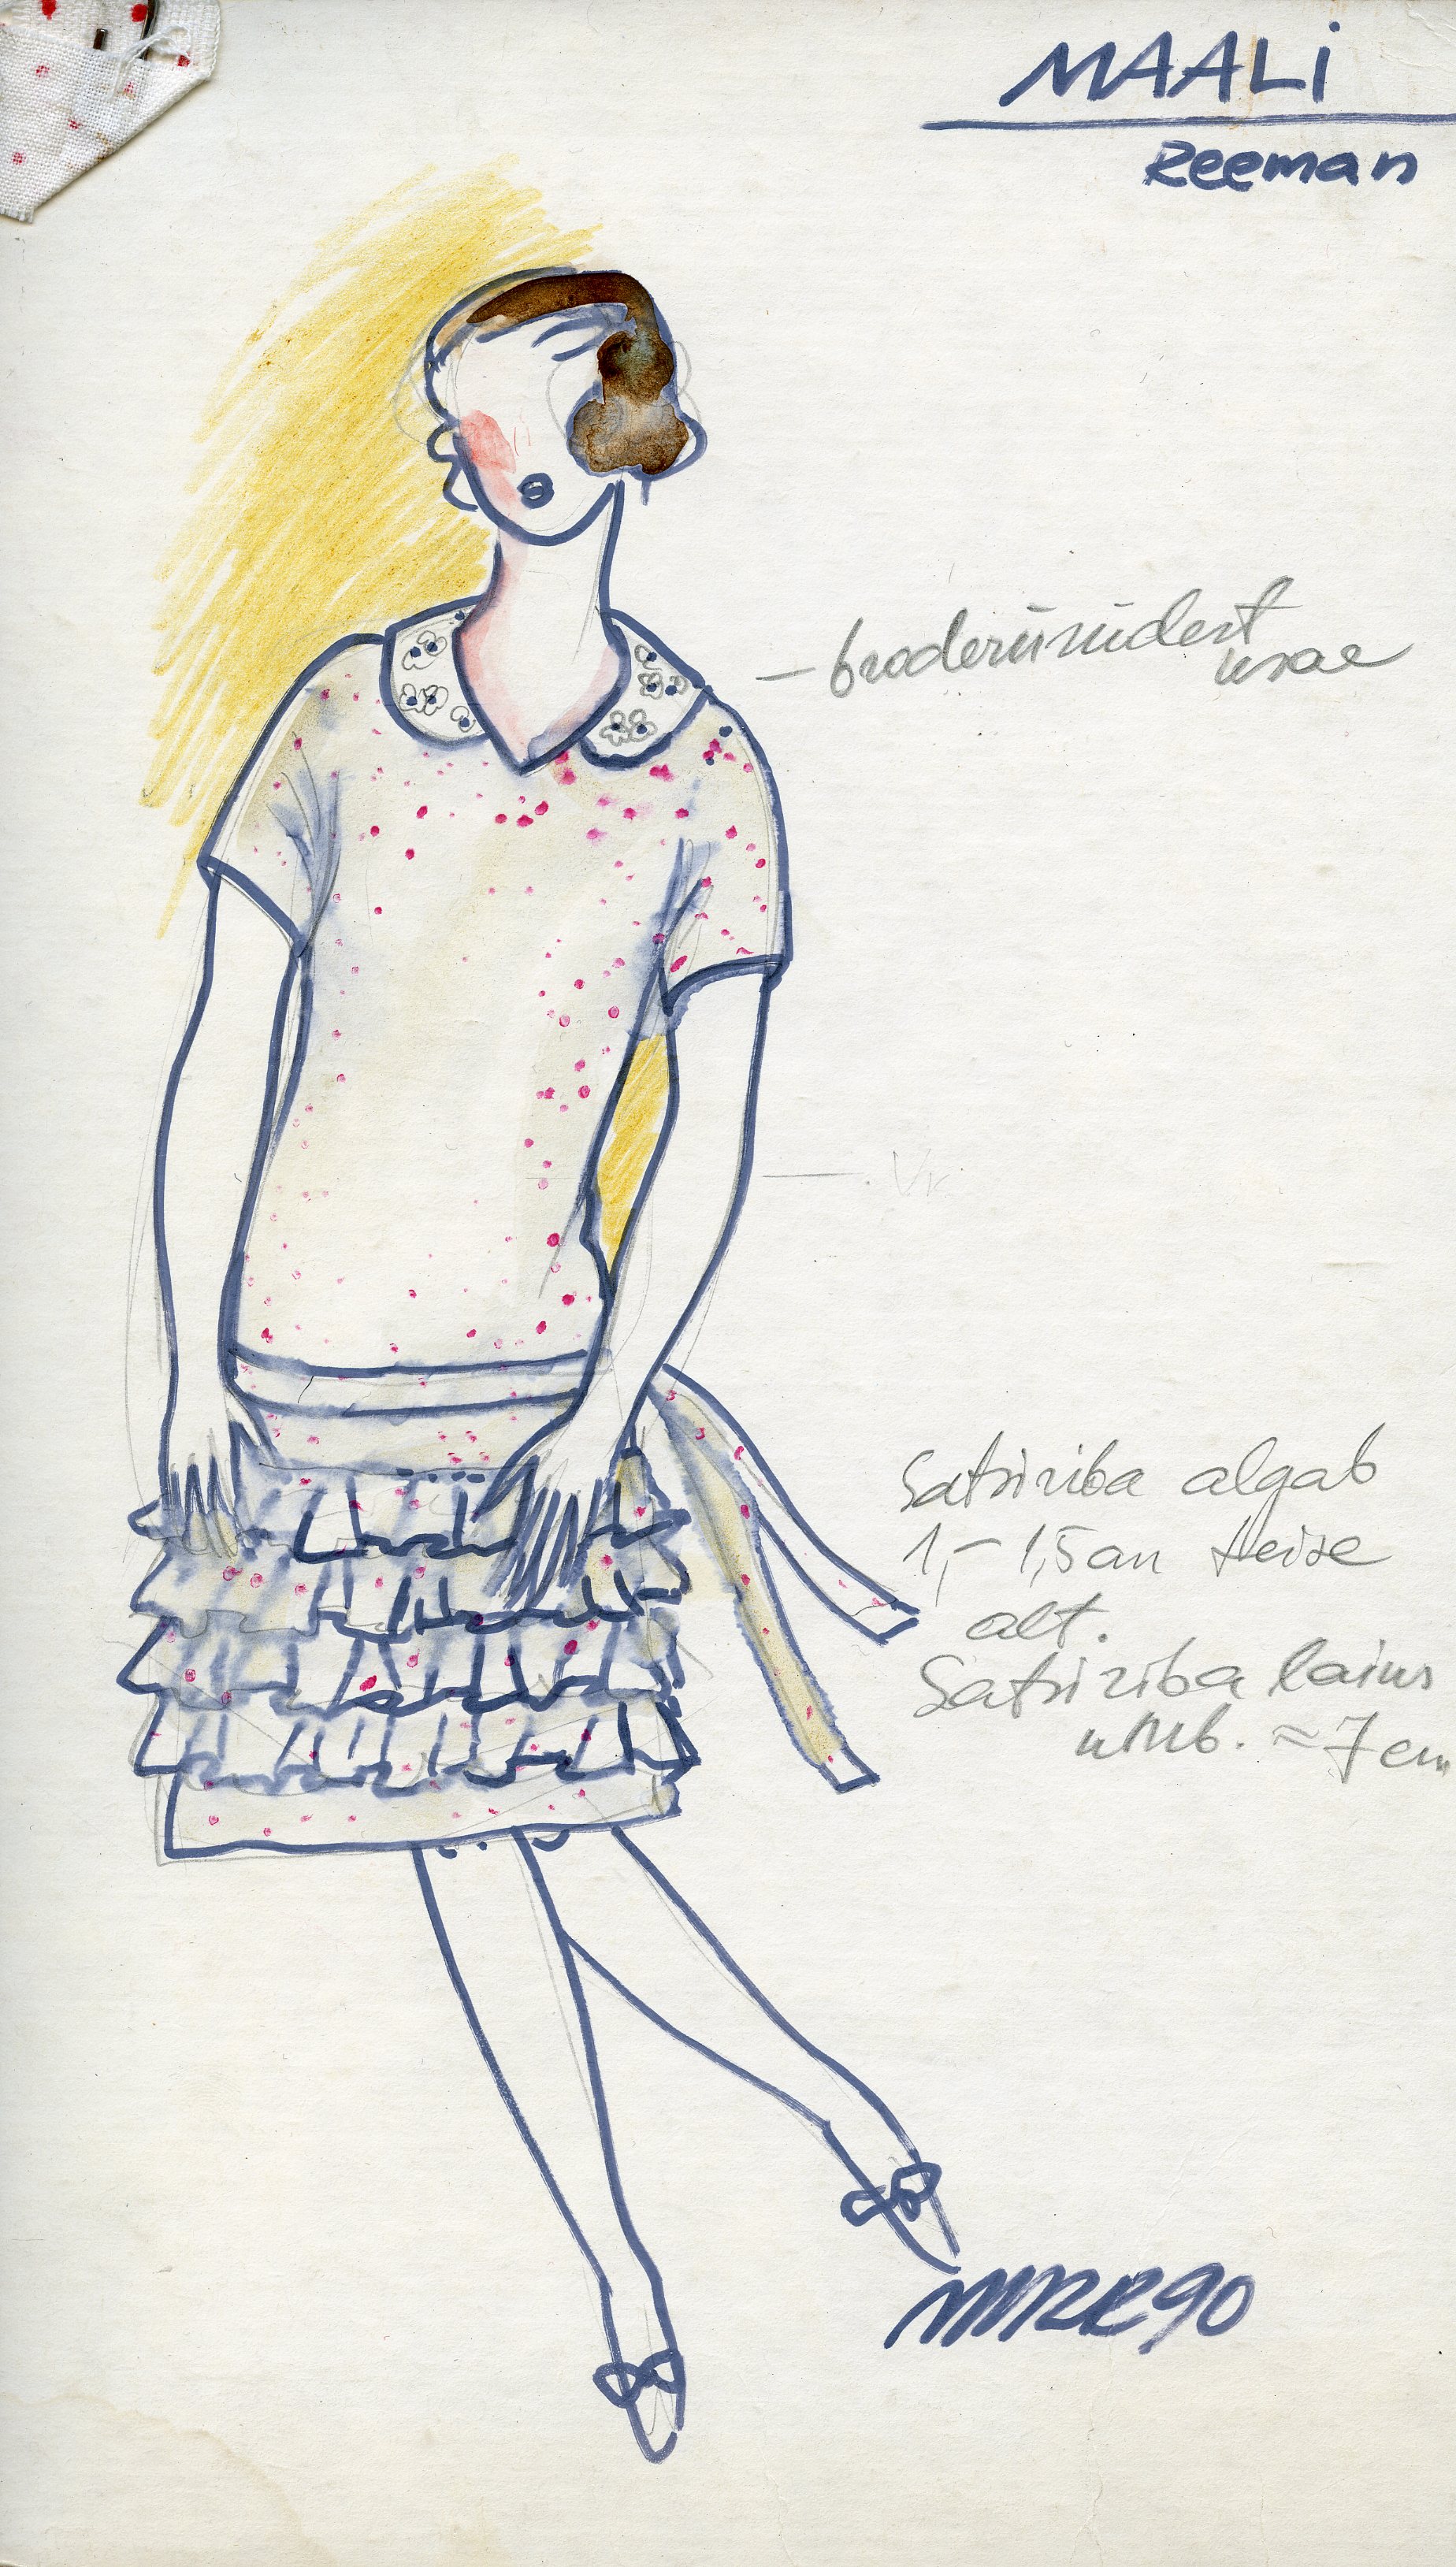 MAALi
Reeman
– broderiisiidest
krae
Satsiriba algab
1,– 1,5 cm teise
alt.
Satsiriba laius
umb. ≈ 7 cm
90